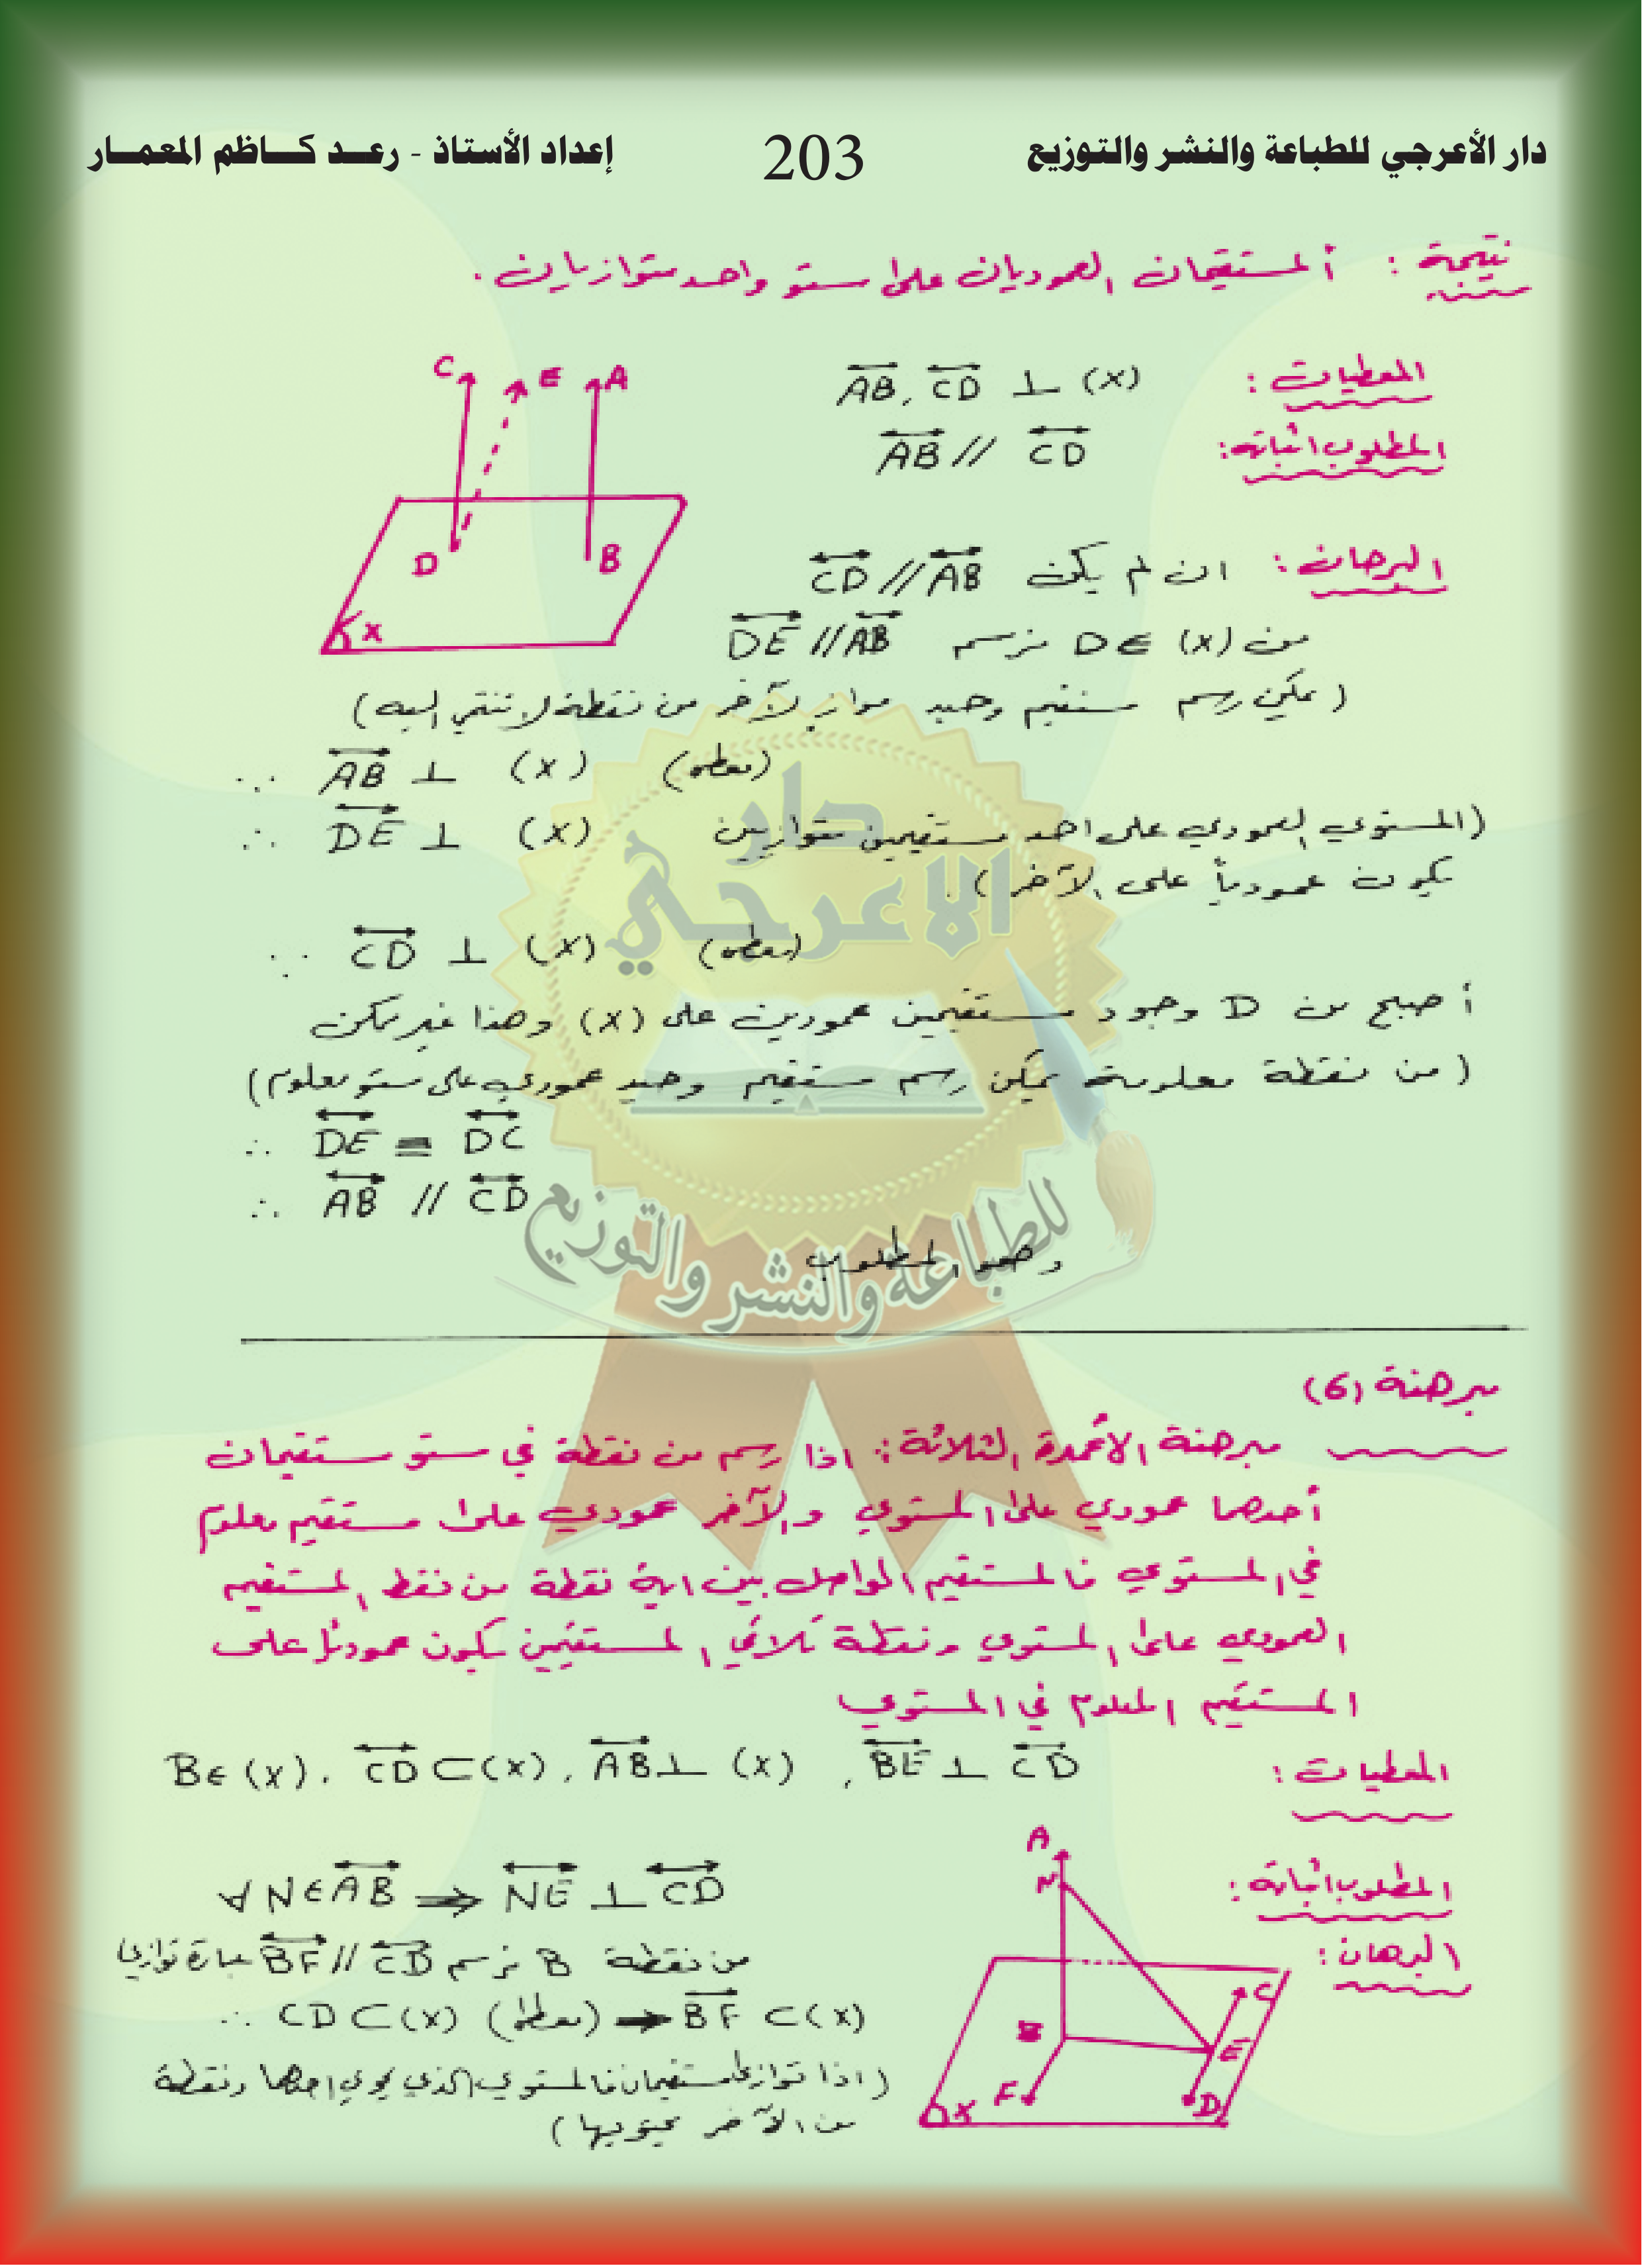 دار الأعرجي للطباعة والنشر والتوزيع 203 إعداد الأستاذ - رعد كاظم المعمار
نتيجة : المستقيمان العموديان على مستو واحد متوازيان .
المعطيات : AB, CD ⊥ (X)
المطلوب اثباته: AB // CD
C E A
D B
X
البرهان : ان لم يكن CD // AB
من D ∈ (X) نرسم DE // AB
( يمكن رسم مستقيم وحيد مواز لآخر من نقطة لا تنتمي اليه )
∵ AB ⊥ (X) (معطى)
∴ DE ⊥ (X) (المستوي العمودي على احد مستقيمين متوازيين
يكون عمودياً على الآخر ) .
∵ CD ⊥ (X) (معطى)
أصبح من D وجود مستقيمين عموديين على (X) وهذا غير ممكن
( من نقطة معلومة يمكن رسم مستقيم وحيد عمودي على مستو معلوم )
∴ DE = DC
∴ AB // CD
وهو المطلوب
دار
الاعرجي
للطباعة والنشر والتوزيع
مبرهنة (6)
مبرهنة الأعمدة الثلاثة : اذا رسم من نقطة في مستو مستقيمان
أحدهما عمودي على المستوي والآخر عمودي على مستقيم معلوم
في المستوي فالمستقيم الواصل بين اية نقطة من نقط المستقيم
العمودي على المستوي ونقطة تلاقي المستقيمين يكون عمودياً على
المستقيم المعلوم في المستوي
المعطيات : B ∈ (X) , CD ⊂ (X) , AB ⊥ (X) , BE ⊥ CD
المطلوب اثباته : ∀ N ∈ AB ⇒ NE ⊥ CD
A
N
C
E
F
D
X
البرهان : من نقطة B نرسم BF // CD عبارة توازي
∴ CD ⊂ (X) (معطى) → BF ⊂ (X)
( اذا توازى مستقيمان فالمستوي الذي يحوي احدهما ونقطة
من الآخر يحتويها )